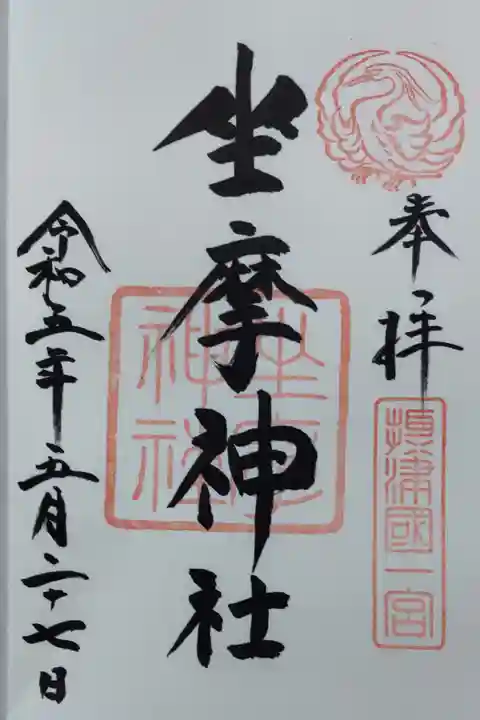 奉拝
攝津國一宮
坐摩神社
坐摩神社
令和五年五月二十七日